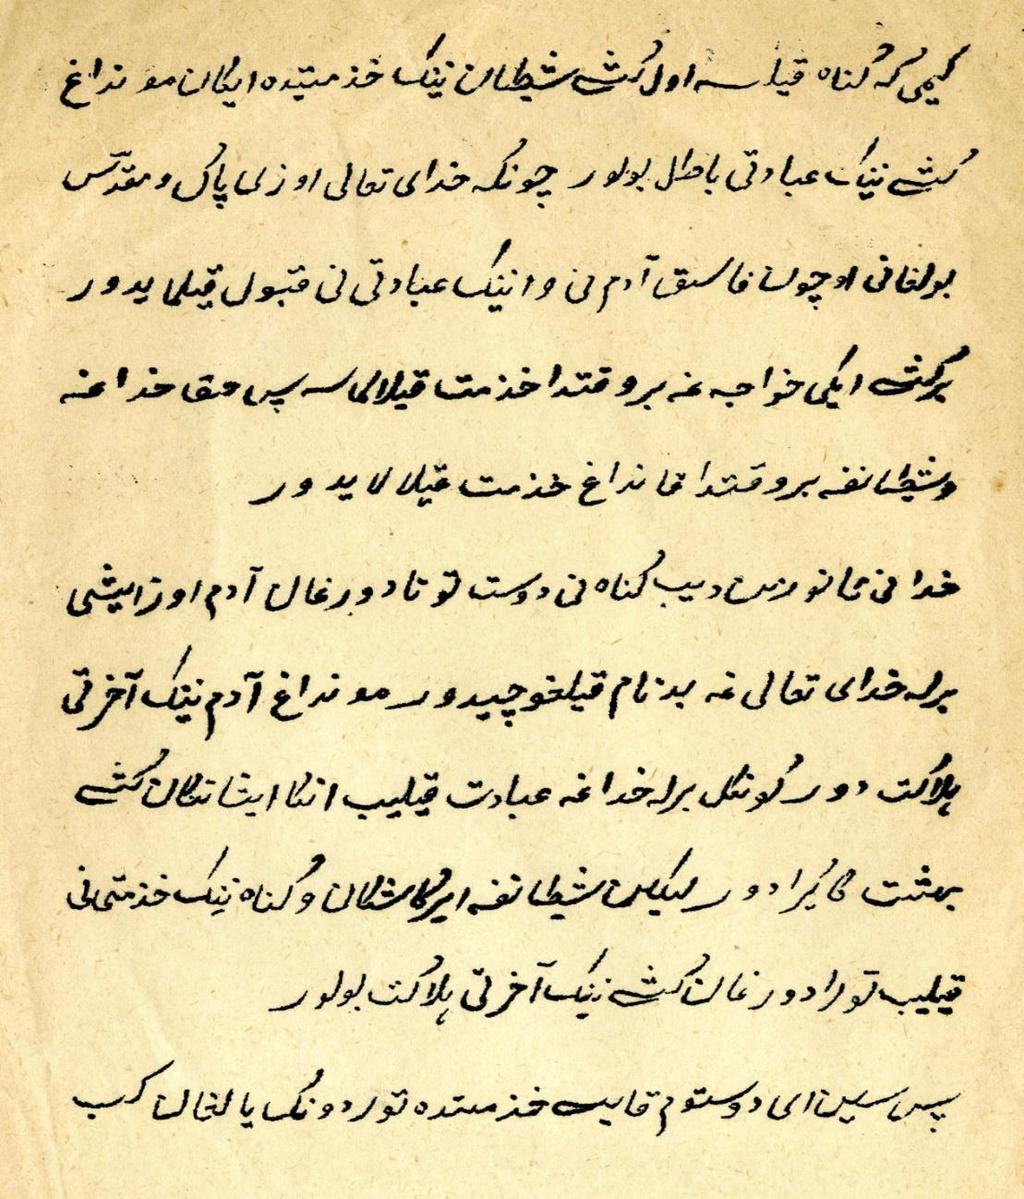 كیمی كه گناه قیلسه اول كشی شیطان نینك خذمتیده ایكان مونداغ
كشی نینك عبادتی باطل بولور چونكه خدای تعالی اوزی پاك و مقدّس
بولغانی اوچون فاسق آدم نی و انینك عبادتی نی قبول قیلمایدور
بر كشی ایكی خواجه غه بر وقتدا خذمت قیلالمسه پس حق خداغه
و شیطانغه بر وقتدا قانداغ خذمت قیلالایدور
خدانی تانورمن دیب گناه نی دوست توتادورغان آدم اوز ایشی
برله خدای تعالی غه بدنام قیلغوچیدور مونداغ آدم نینك آخرتی
هلاكت دور كونكل برله خداغه عبادت قیلیب انكا ایشانكان كشی
بهشت كا كیرادور لیكین شیطانغه ایركاشكان و گناه نینك خذمتی نی
قیلیب تورادورغان كشی نینك آخرتی هلاكت بولور
پس سین ای دوستوم قایسی خذمتده توردونك یالغان كب